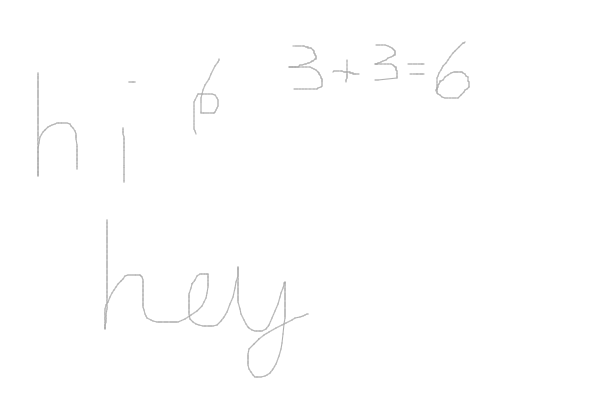 hi 3+3=6
hey